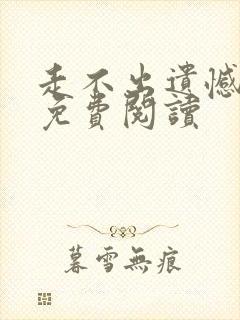 走不出遺憾
免費閱讀
暮雪無痕